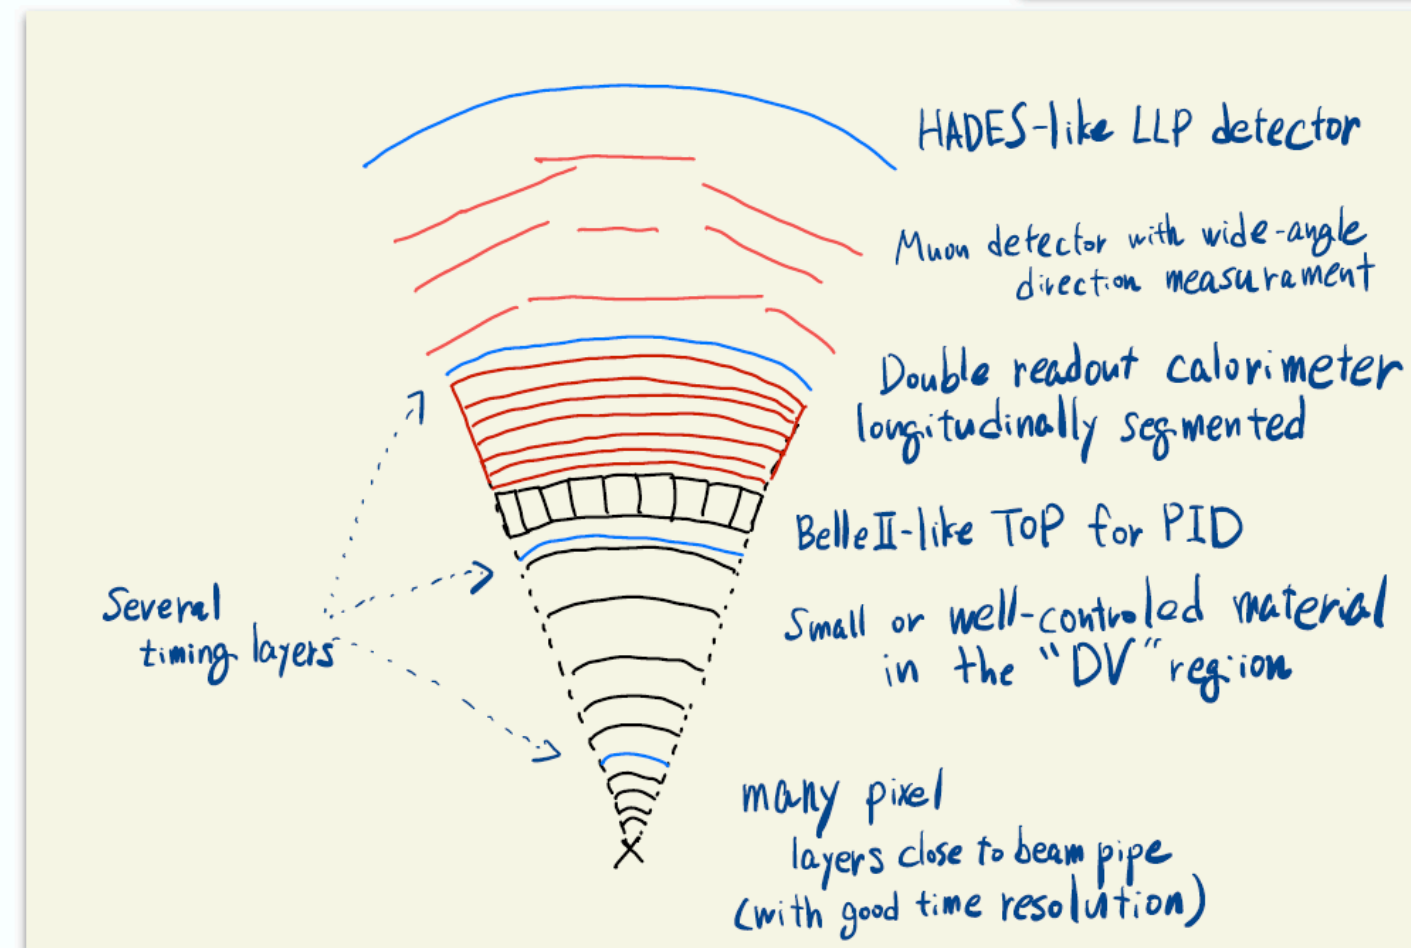 HADES-like LLP detector
Muon detector with wide-angle
direction measurament
Double readout calorimeter
longitudinally segmented
Belle II-like TOP for PID
Small or well-controled material
in the "DV" region
Several
timing layers
many pixel
layers close to beam pipe
(with good time resolution)